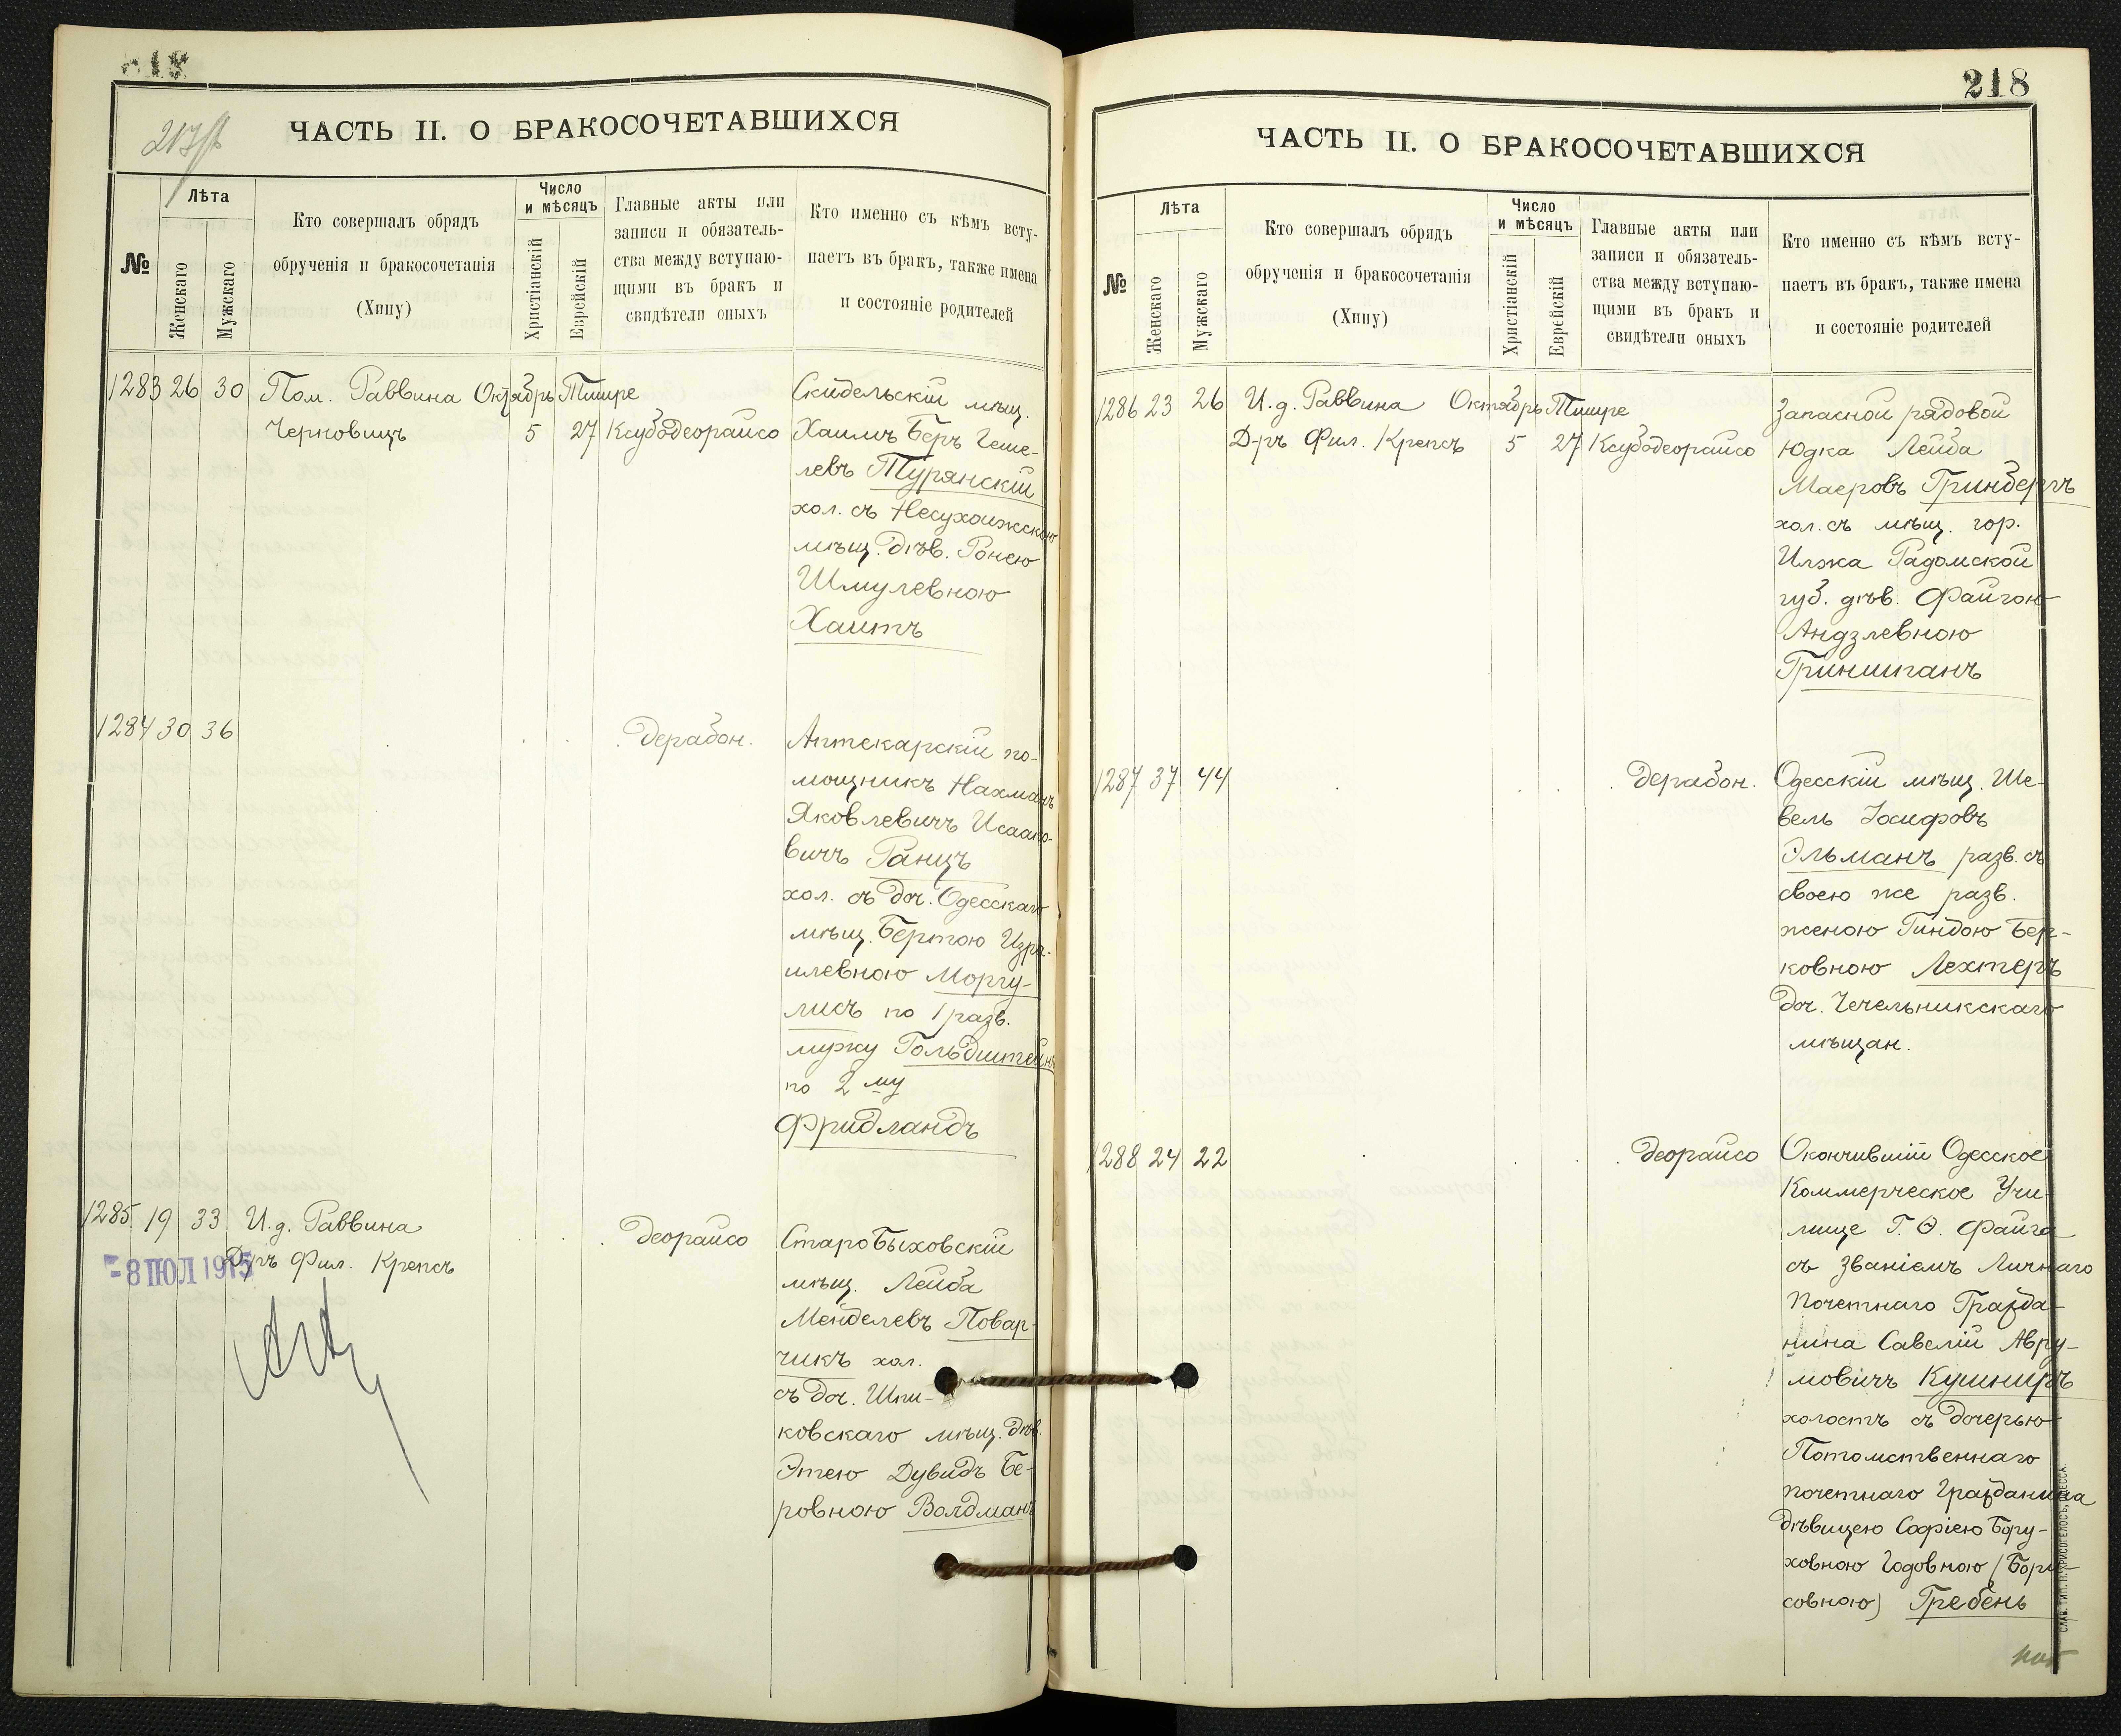 218
217/6
ЧАСТЬ II. О БРАКОСОЧЕТАВШИХСЯ
№
Лѣта
Женскаго
Мужскаго
Кто совершалъ обрядъ
обрученія и бракосочетанія
(Хипу)
Число
и мѣсяцъ
Христіанскій
Еврейскій
Главные акты или
записи и обязатель-
ства между вступаю-
щими въ бракъ и
свидѣтели оныхъ
Кто именно съ кѣмъ всту-
паетъ въ бракъ, также имена
и состояніе родителей
1283 26 30 Пом. Раввина Октябрь Тишре
Черковицъ 5 27 Ксубодеорайсо
Скидельскій мѣщ.
Хаимъ Беръ Геше-
левъ Турянскій
хол. съ Несухоижскою
мѣщ. дѣв. Ронею
Шмулевною
Хаитъ
1284 30 36 дерабон.
Аптекарскій по-
мощникъ Нахманъ
Яковлевичъ Исаако-
вичъ Ганцъ
хол. съ доч. Одесскаго
мѣщ. Бертою Изра-
илевною Моргу-
лисъ по 1 разв.
мужу Гольдштейнъ
по 2 му
Фридландъ
1285 19 33 И.д. Раввина
Д-ръ Фил. Крепсъ
деорайсо
-8 ІЮЛ 1915
СтароБыховскій
мѣщ. Лейба
Менделевъ Повар-
чикъ хол.
съ доч. Шпи-
ковскаго мѣщ. дѣв.
Этею Дувидъ Бе-
ровною Волдманъ
218
ЧАСТЬ II. О БРАКОСОЧЕТАВШИХСЯ
№
Лѣта
Женскаго
Мужскаго
Кто совершалъ обрядъ
обрученія и бракосочетанія
(Хипу)
Число
и мѣсяцъ
Христіанскій
Еврейскій
Главные акты или
записи и обязатель-
ства между вступаю-
щими въ бракъ и
свидѣтели оныхъ
Кто именно съ кѣмъ всту-
паетъ въ бракъ, также имена
и состояніе родителей
1286 23 26 И.д. Раввина Октябрь Тишре
Д-ръ Фил. Крепсъ 5 27 Ксубодеорайсо
Запасной рядовой
Юдка Лейба
Маеровъ Гринбергъ
хол. съ мѣщ. гор.
Илжа Радомской
губ. дѣв. Файгою
Андзлевною
Гриншпанъ
1287 37 44 дерабон.
Одесскій мѣщ. Ше-
вель Іосифовъ
Эльманъ разв. съ
своею же разв.
женою Гиндою Бер-
ковною Лехтеръ
доч. Чечельникскаго
мѣщан.
1288 24 22 деорайсо
Окончившій Одесское
Коммерческое Учи-
лище Г. Ѳ. Файга
съ званіемъ Личнаго
Почетнаго Гражда-
нина Савелій Авру-
мовичъ Кушниръ
холостъ съ дочерью
Потомственнаго
почетнаго Гражданина
дѣвицею Софіею Бору-
ховною Годовною (Бори-
совною) Гребень
СЛАВ. ТИП. Н. ХРИСОГЕЛОСЪ, ОДЕССА.